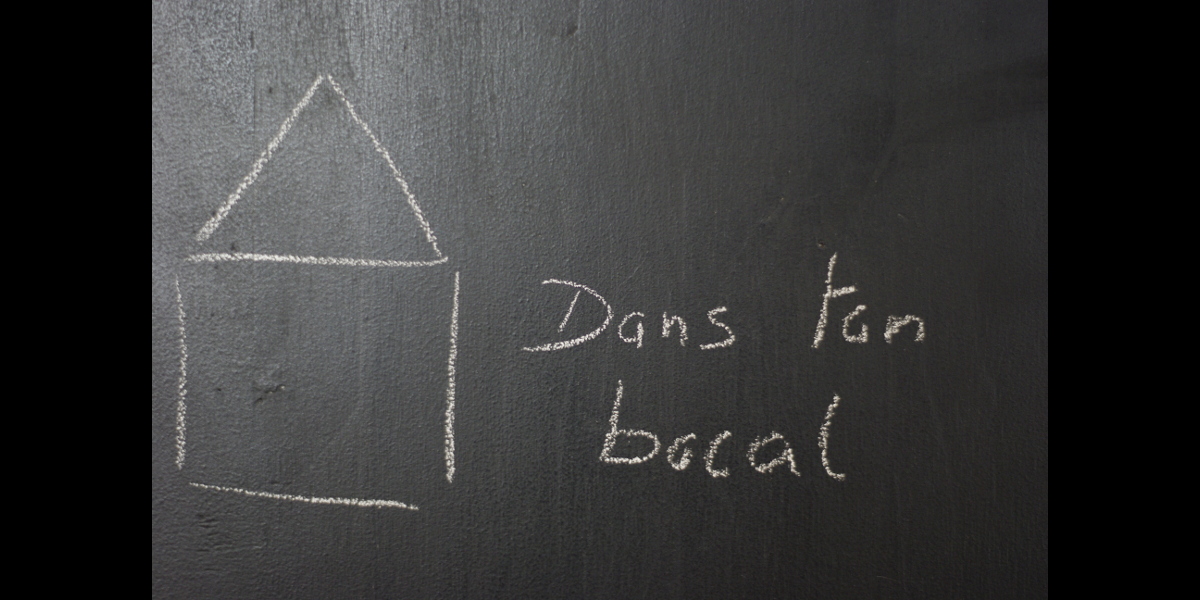 Dans ton
bocal